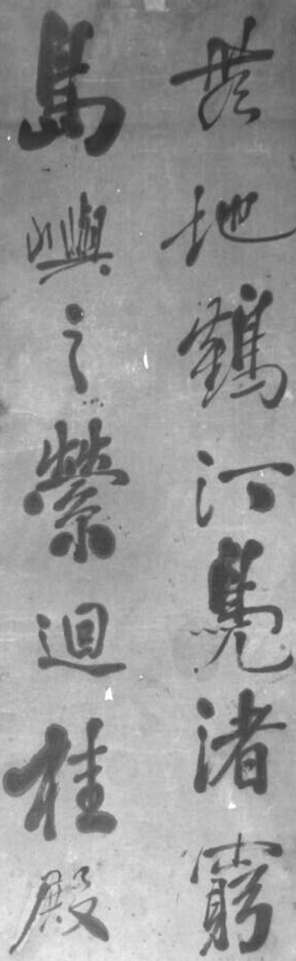 無地鶴汀鳧渚窮
島嶼之縈迴桂殿